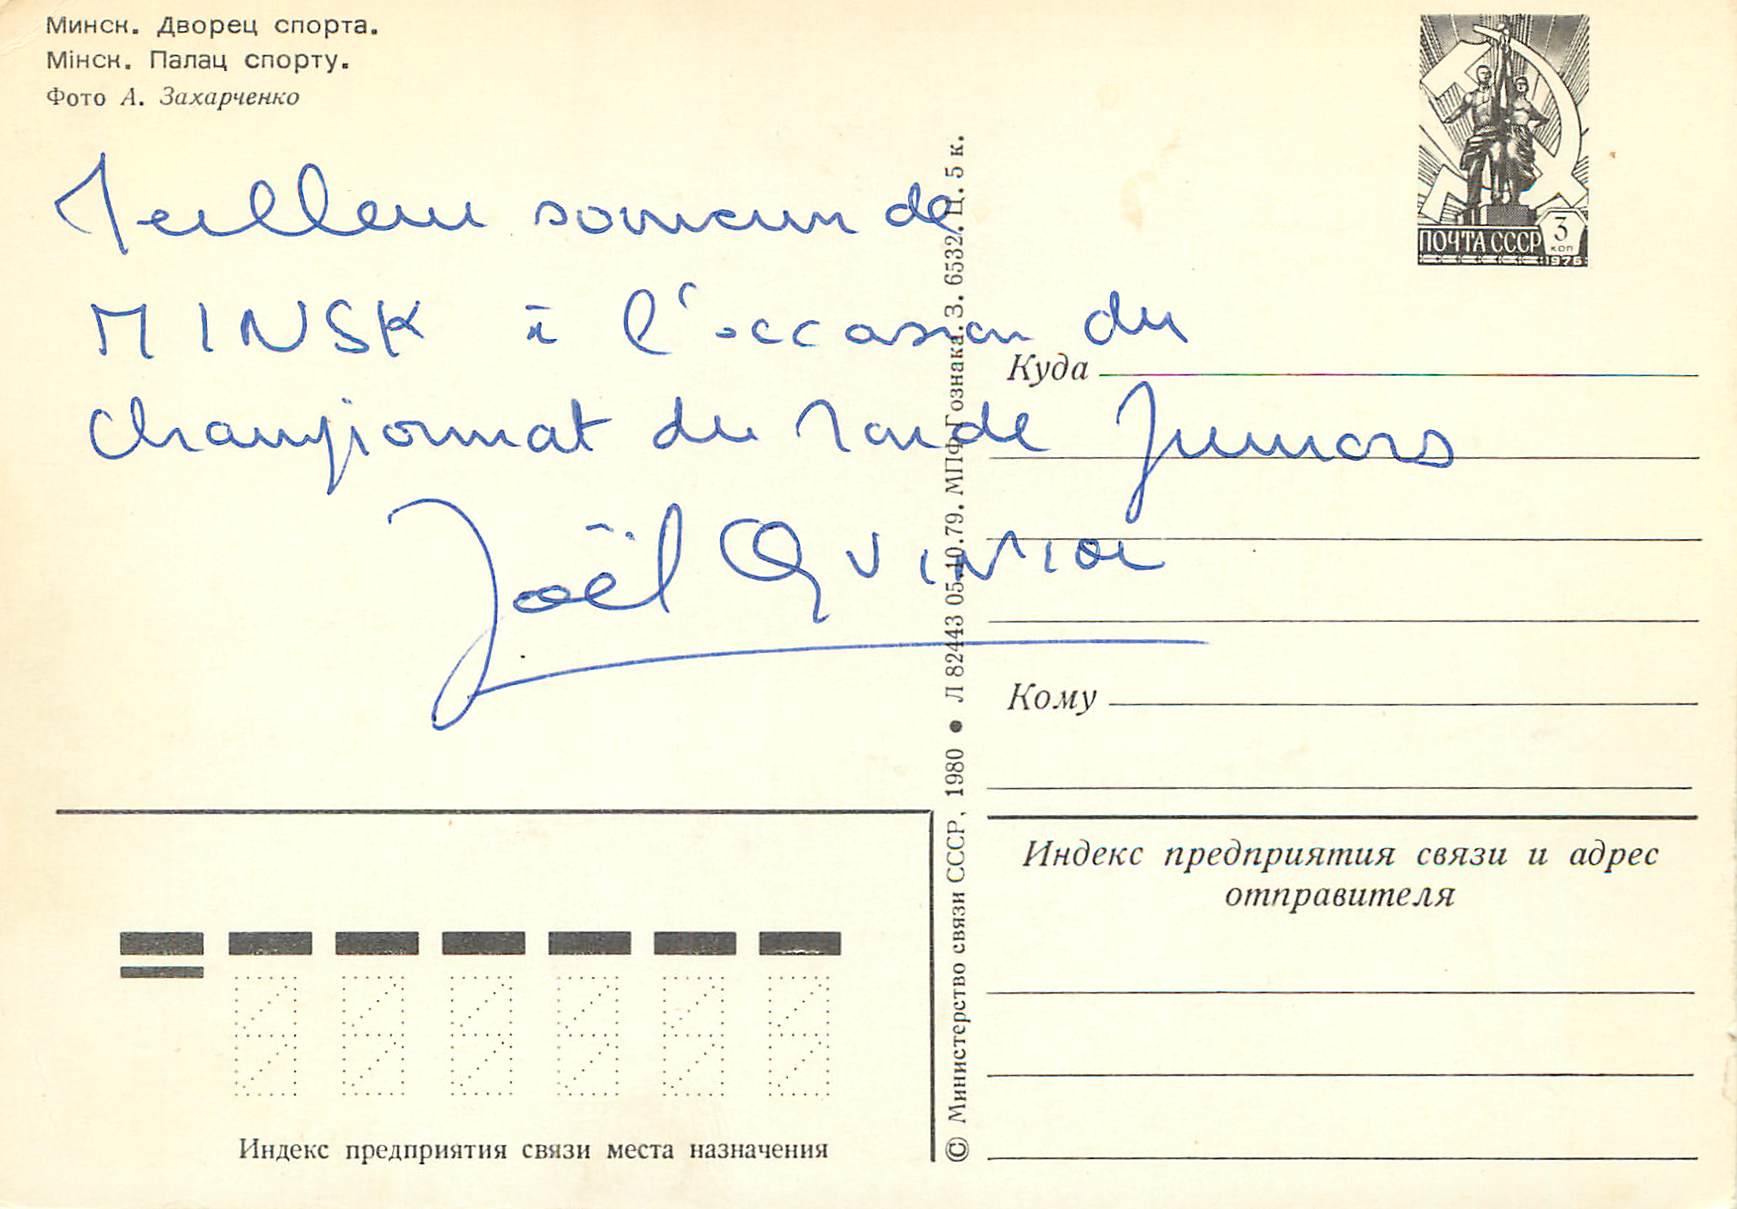 Минск. Дворец спорта.
Мінск. Палац спорту.
Фото А. Захарченко
ПОЧТА СССР 3 КОП 1976
Meilleur souvenir de
MINSK à l'occasion du
Championnat du Monde Juniors
Joël QUINIOU
Куда
Кому
Индекс предприятия связи и адрес
отправителя
Индекс предприятия связи места назначения
© Министерство связи СССР, 1980 ● Л 82443 05.10.79. МПФ Гознака. З. 6532. Ц. 5 к.